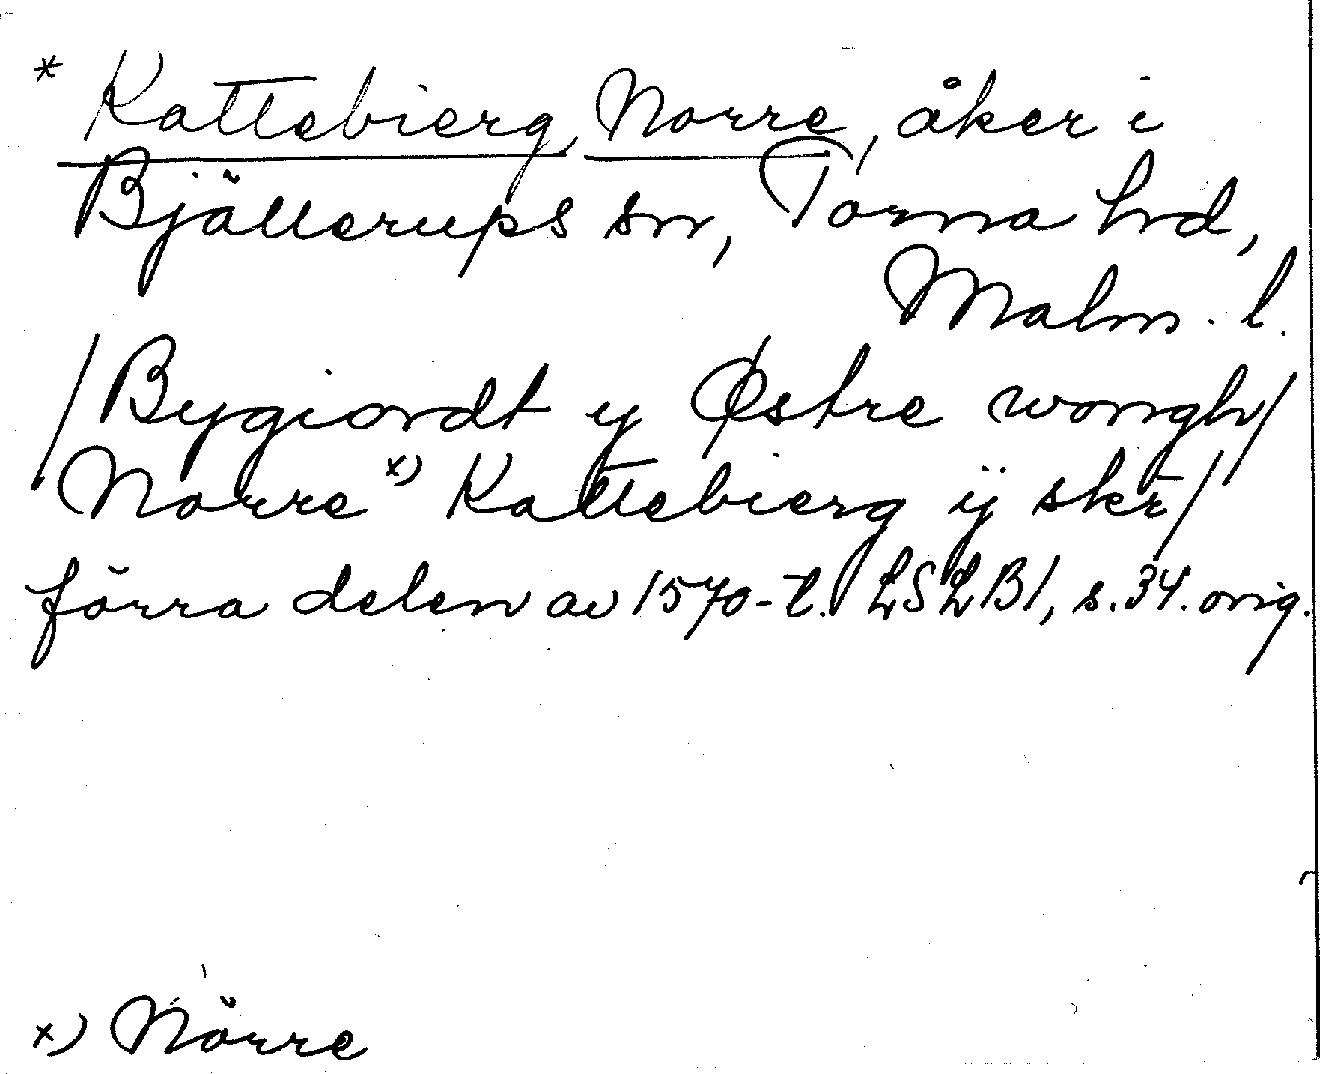 * Kattebierg, Norre, åker i
Bjällerups sn, Torna hd,
Malm. l.
/Bygiordt y Østre wongh/
Norre x) Kattebierg ÿ skr/
förra delen av 1570-t. LSLB1, s.34. orig.
x) Nörre